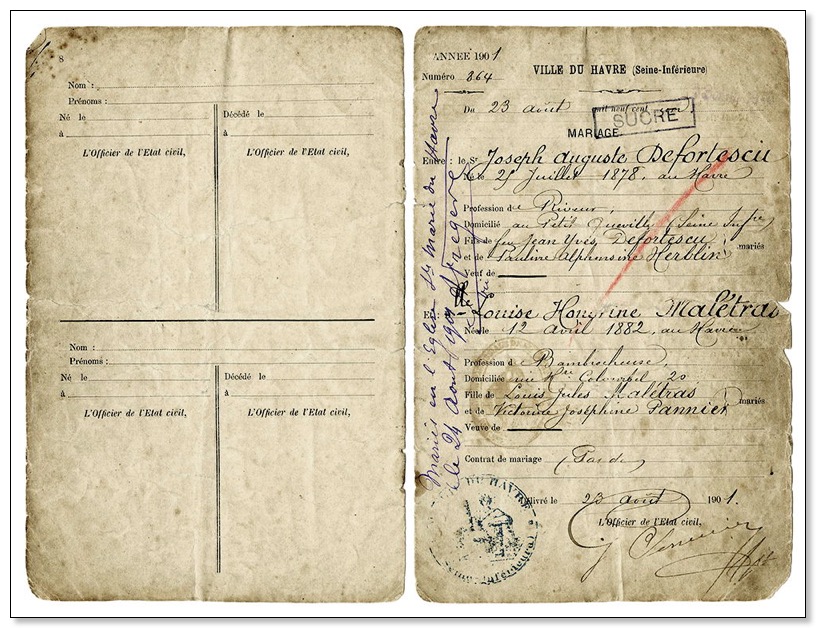 8
Nom :
Prénoms :
Né le
Décédé le
à
à
L'Officier de l'Etat civil,
L'Officier de l'Etat civil,
Nom :
Prénoms :
Né le
Décédé le
à
à
L'Officier de l'Etat civil,
L'Officier de l'Etat civil,
ANNÉE 1901
Numéro 864
VILLE DU HAVRE (Seine-Inférieure)
Du 23 août mil neuf cent
SUCRE
MARIAGE
Entre : le Sr Joseph Auguste Defortescu
Né le 25 Juillet 1878, au Havre
Profession de Riveur,
Domicilié au Petit Quevilly (Seine Infre)
Fils de feu Jean Yves Defortescu
et de Pauline Alphonsine Herblin
mariés
Veuf de
Et : Mlle Louise Honorine Malétras
Née le 12 avril 1882, au Havre
Profession de
Domiciliée rue 20
Fille de Louis Jules Malétras
et de Victorine Joséphine Pannier
mariés
Veuve de
Contrat de mariage (Pas de)
Délivré le 23 août 1901.
L'Officier de l'Etat civil,
Mariés en l'Eglise Ste Marie du Havre
le 24 Aout 1901
DU HAVRE